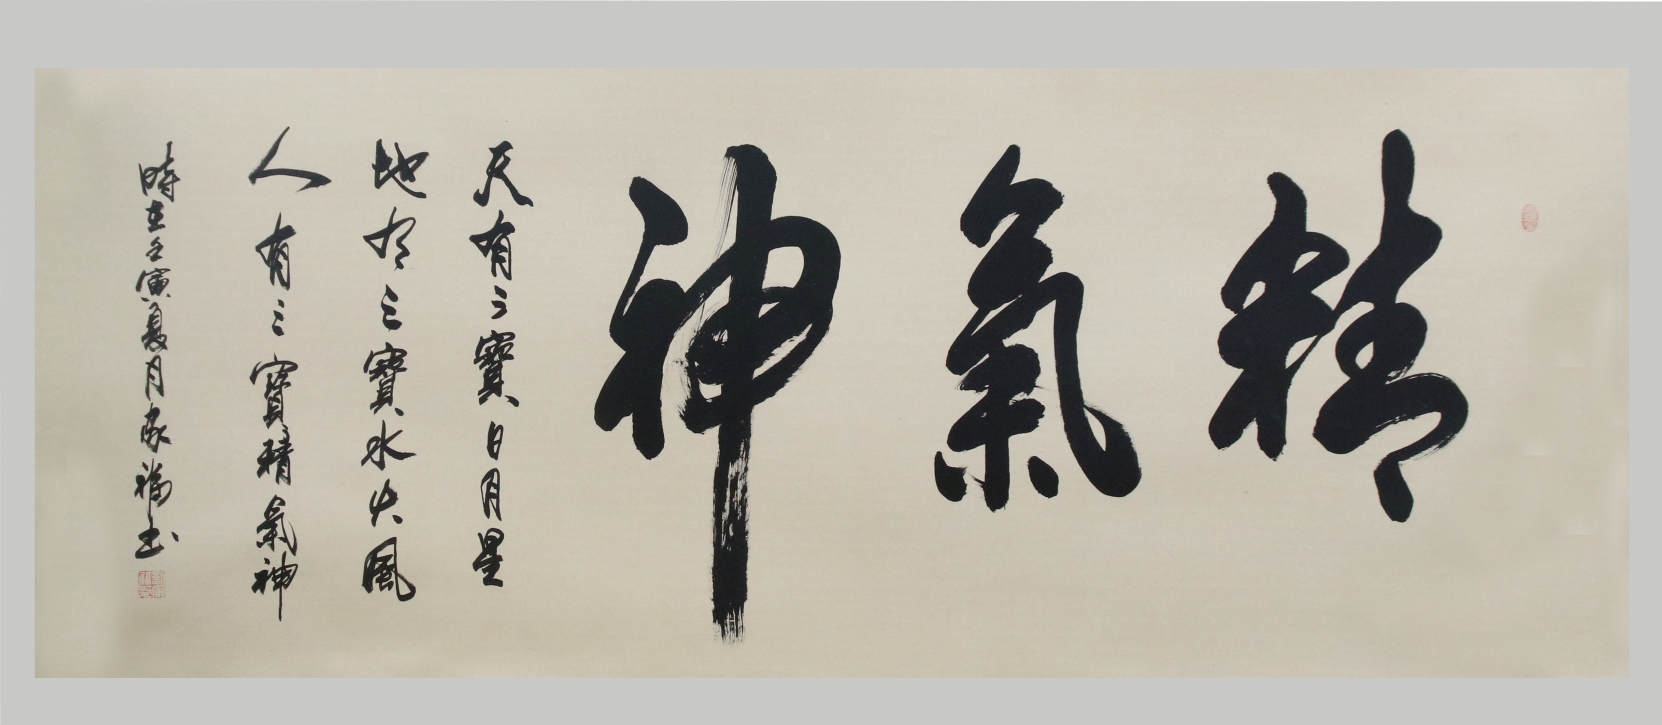 精氣神
天有三寶日月星
地有三寶水火風
人有三寶精氣神
時在壬寅夏月家福书